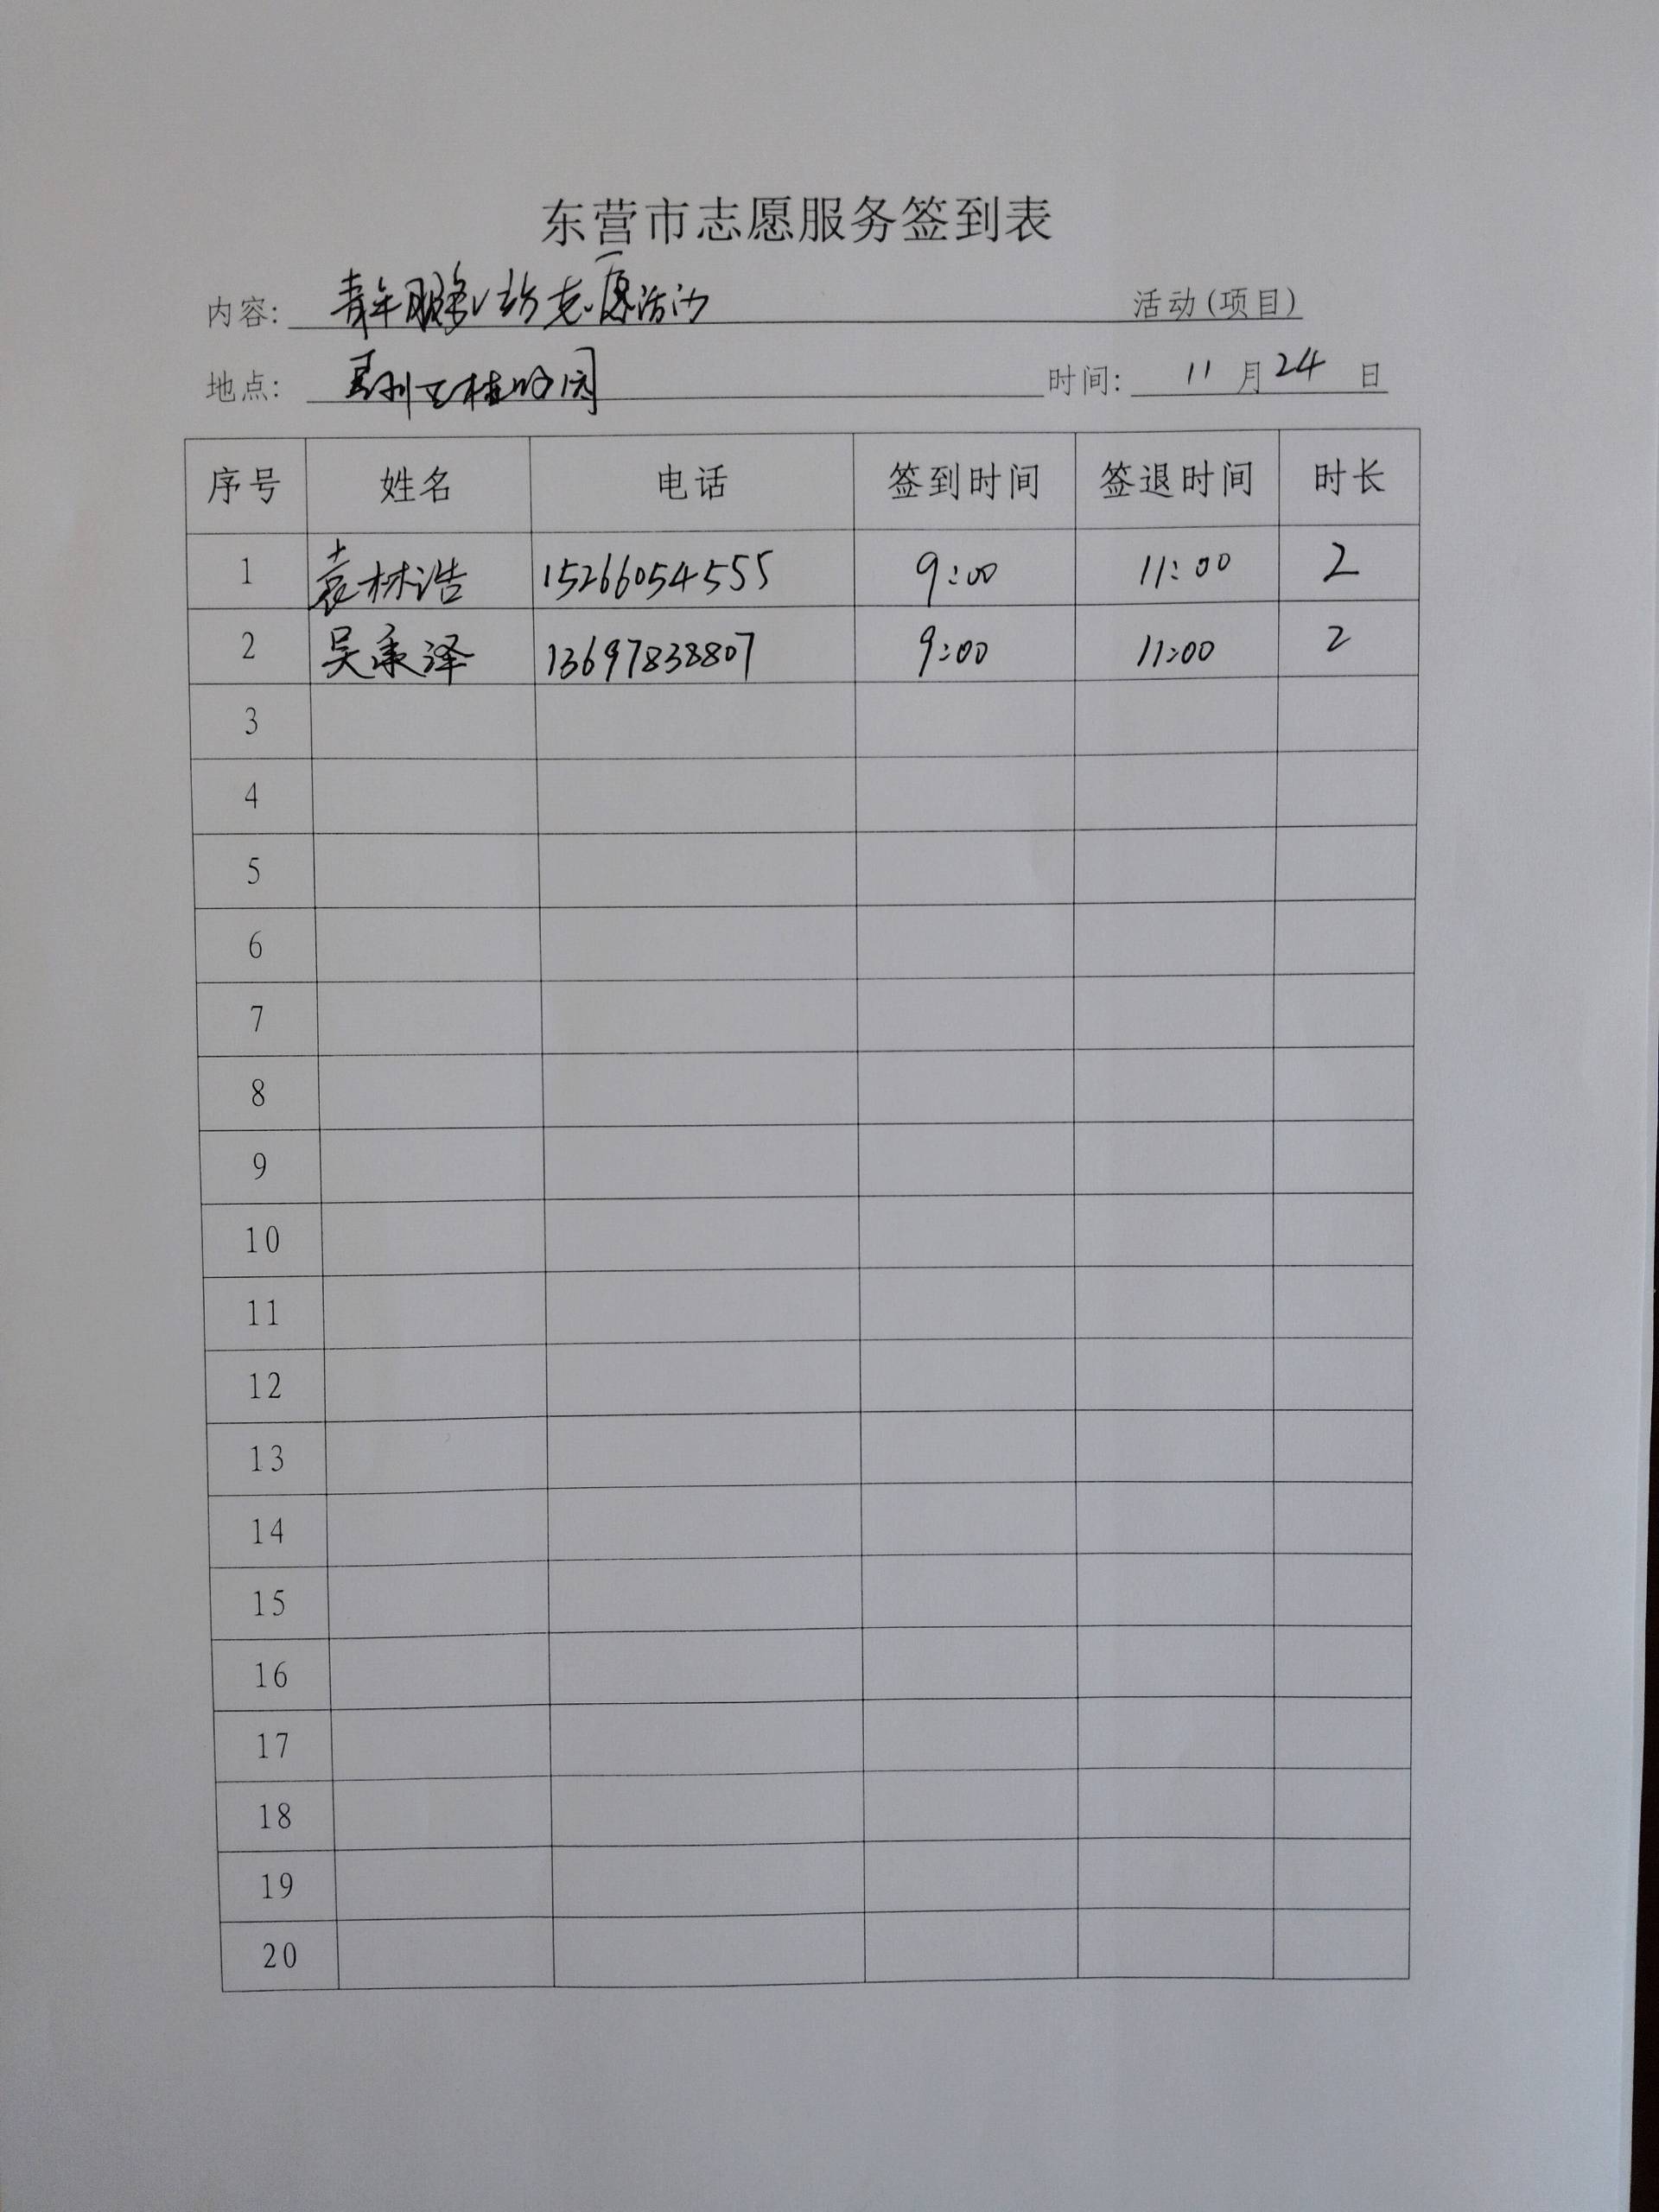 东营市志愿服务签到表
内容: 青年服务 志愿活动 活动(项目)
地点: 时间: 11 月 24 日
序号 姓名 电话 签到时间 签退时间 时长
1 袁林浩 15266054555 9:00 11:00 2
2 吴秉泽 13697838807 9:00 11:00 2
3
4
5
6
7
8
9
10
11
12
13
14
15
16
17
18
19
20